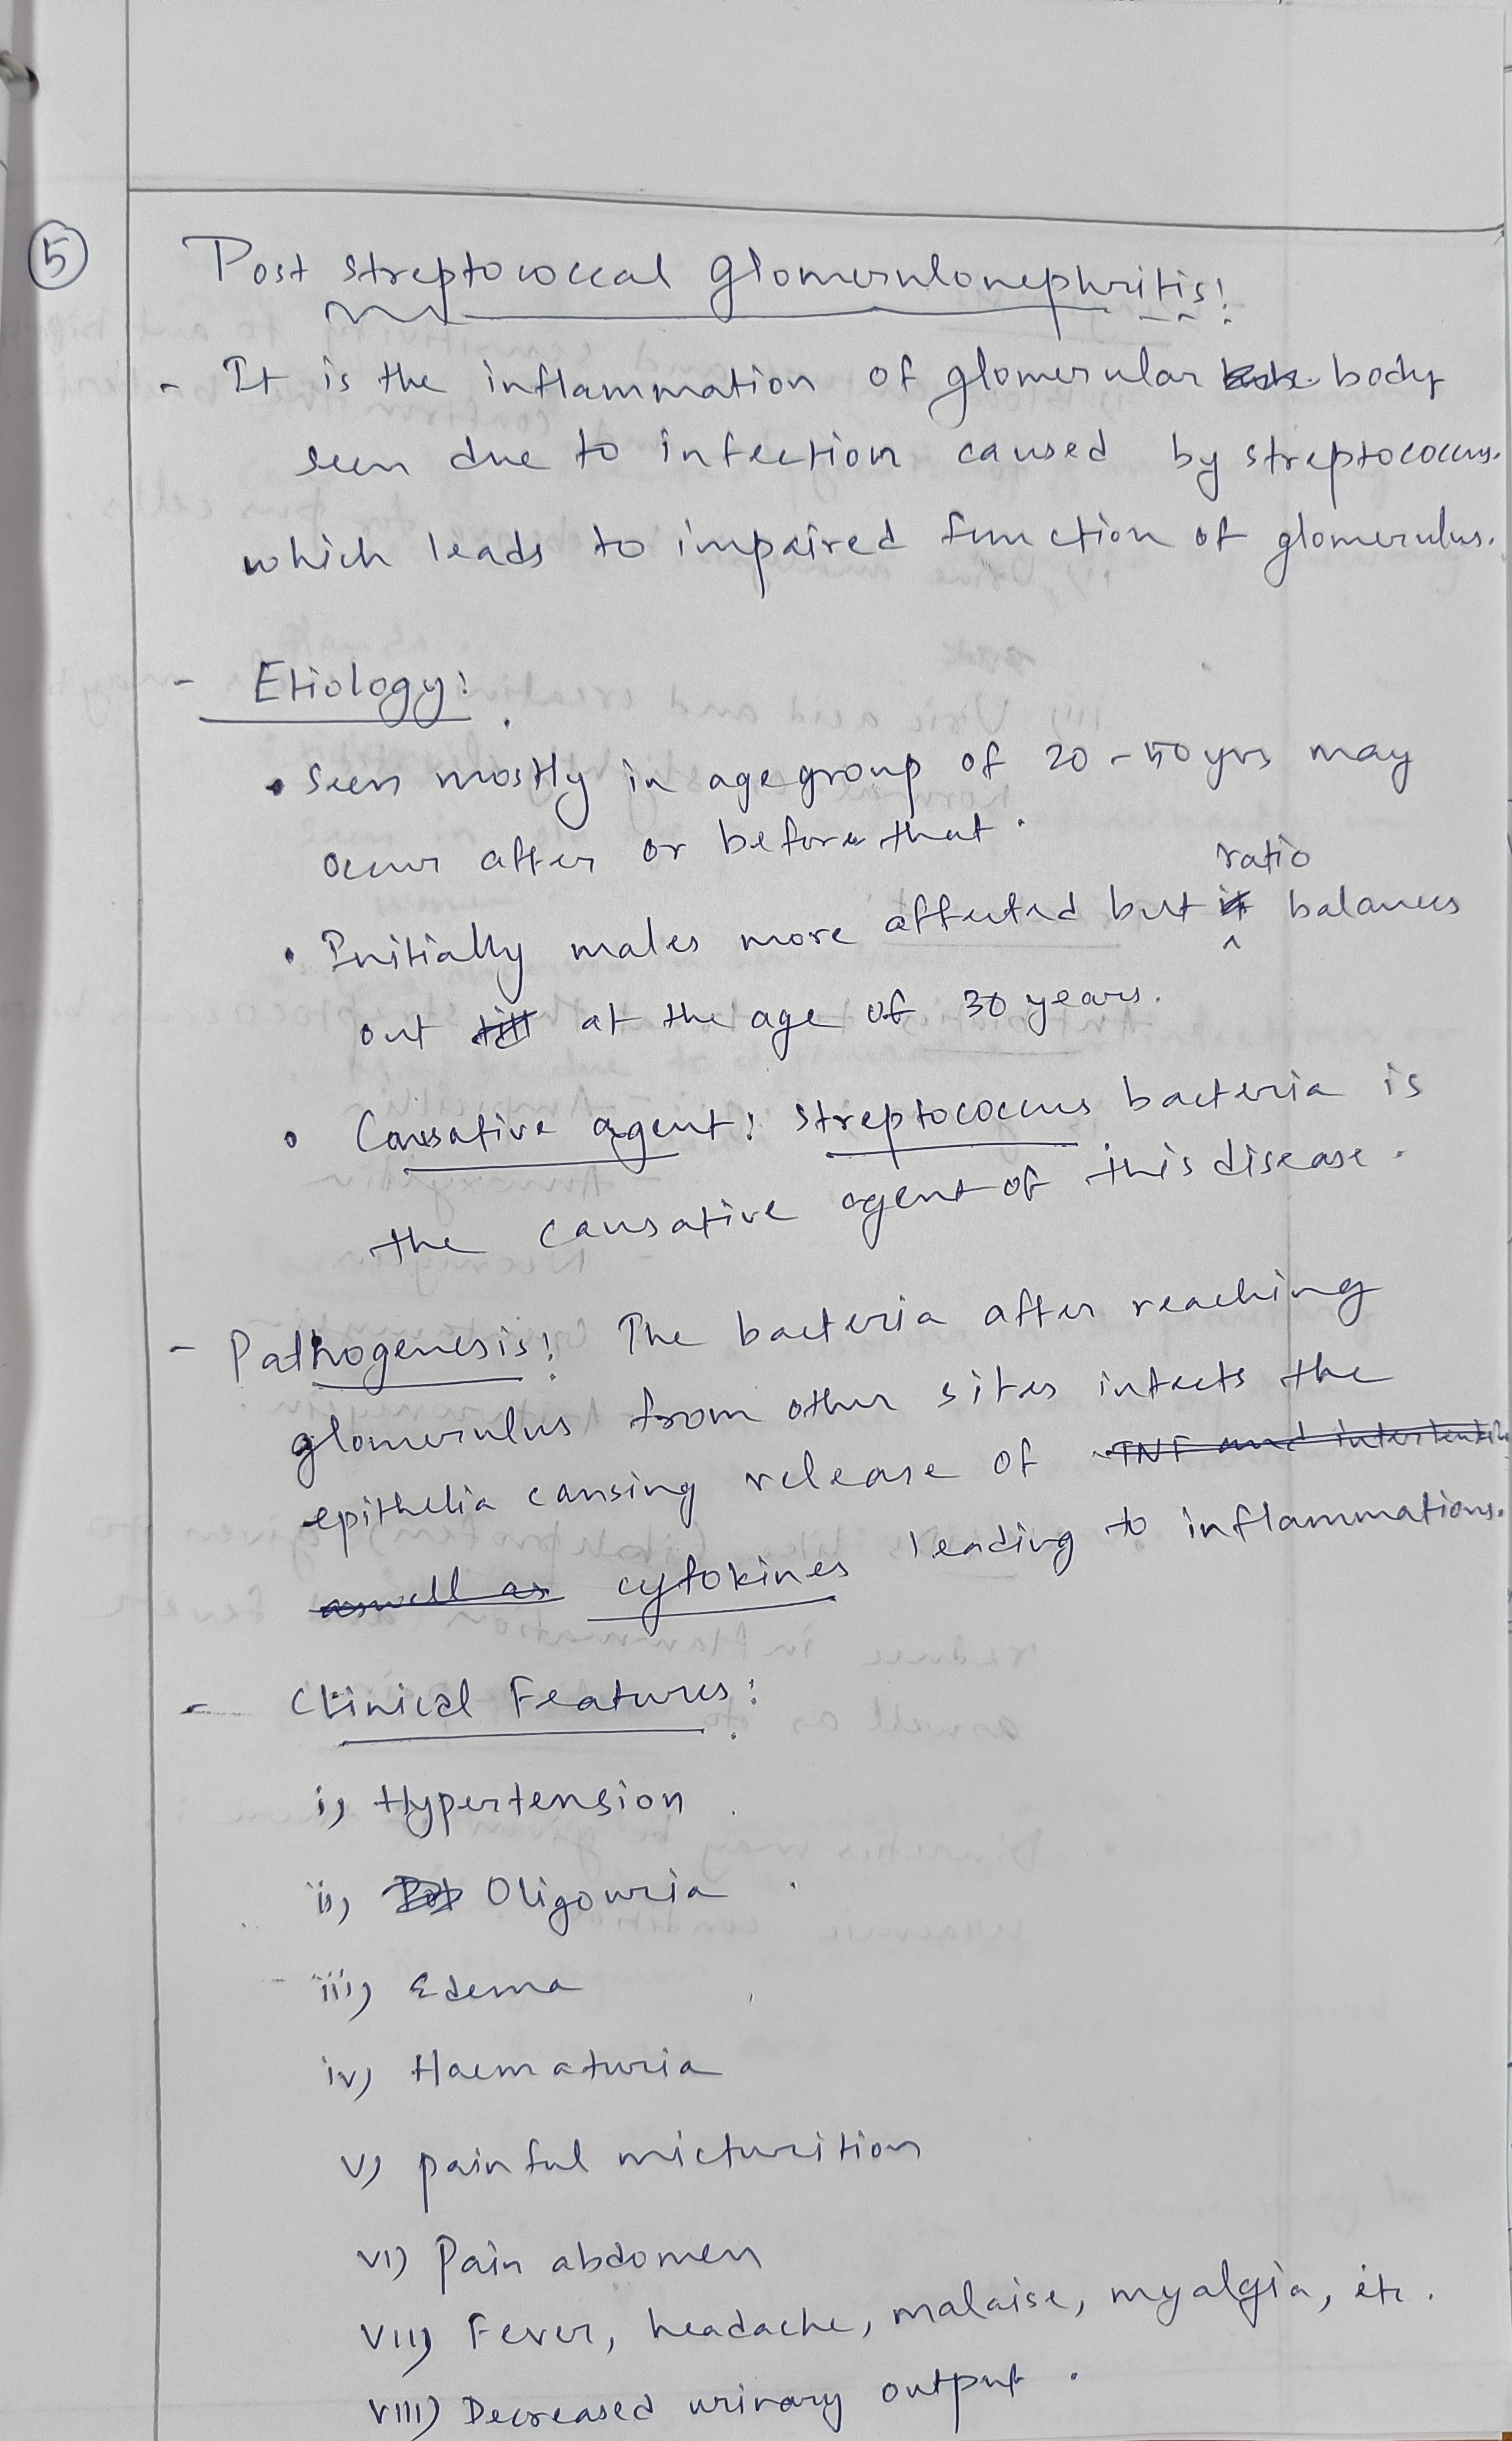 5
Post streptococcal glomerulonephritis:
- It is the inflammation of glomerular body
seen due to infection caused by streptococcus.
which leads to impaired function of glomerulus.
- Etiology:
• Seen mostly in age group of 20-50 yrs may
occur after or before that.
ratio
• Initially males more affected but it balances
out till at the age of 30 years.
• Causative agent: streptococcus bacteria is
the causative agent of this disease.
- Pathogenesis: The bacteria after reaching
glomerulus from other sites infects the
epithelia causing release of TNF and
aswell as cytokines leading to inflammations.
- Clinical Features:
i) Hypertension
ii) Oligouria
iii) Edema
iv) Haematuria
v) painful micturition
vi) Pain abdomen
vii) Fever, headache, malaise, myalgia, etc.
viii) Decreased urinary output.